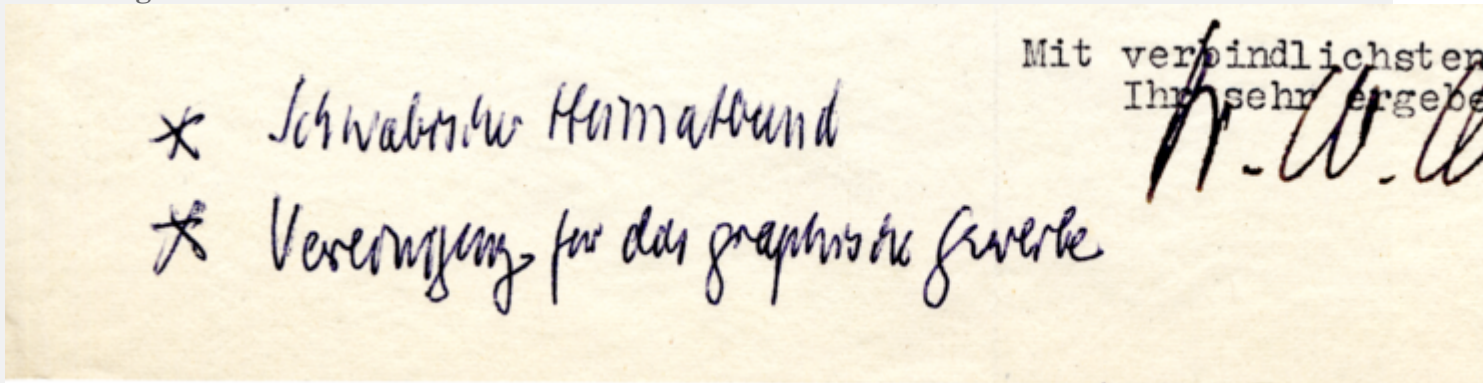 Mit verbindlichsten
Ihr sehr ergebe
* Schwäbischer Heimatbund
* Vereinigung für das graphische Gewerbe